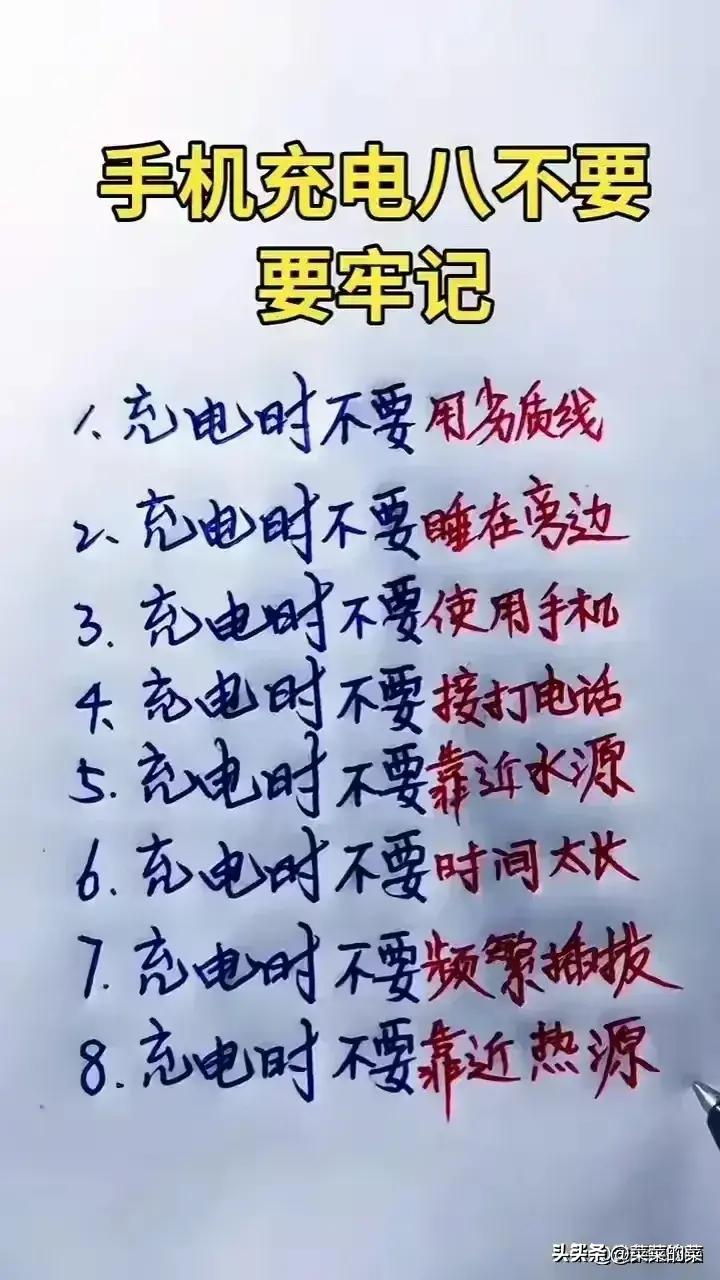 手机充电八不要
要牢记
1、充电时不要用劣质线
2、充电时不要睡在旁边
3.充电时不要使用手机
4、充电时不要接打电话
5.充电时不要靠近水源
6.充电时不要时间太长
7.充电时不要频繁插拔
8.充电时不要靠近热源
头条@菜菜的菜